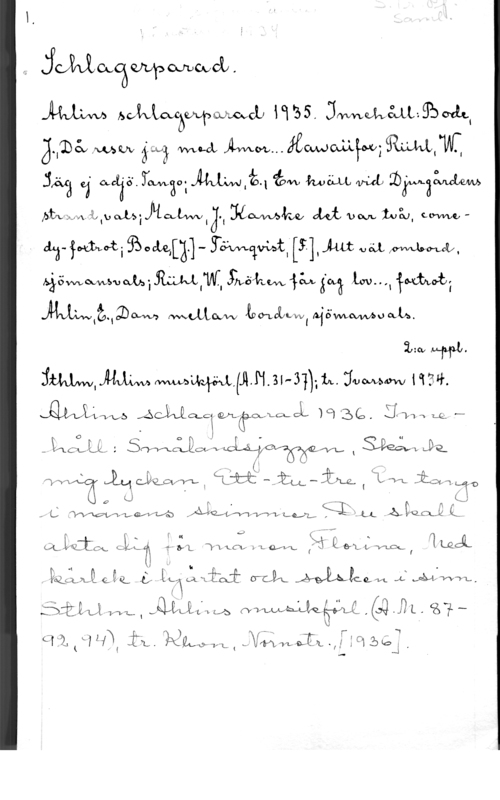 1.
Schlagerparad.
Ahlins schlagerparad 1935. Innehåll: Bode,
J., Då reser jag med Amor... Hawaiifox; Rühl, W.,
Säg ej adjö. Tango; Ahlin, E., En kväll vid Djurgårdens
strand, vals; Malm, J., Kanske det var två, come-
dy-foxtrot; Bode, [J.] - Törnqvist, [F.], Allt väl ombord,
sjömansvals; Rühl, W., Fröken får jag lov..., foxtrot;
Ahlin, E., Dans mellan borden, sjömansvals.
2:a uppl.
Sthlm, Ahlins musikförl. (A.M. 31-37); tr. Ivarson 1934.
Ahlins schlagerparad 1936. Inne-
håll: Smålandsjazzen, Skänk
mig lyckan, Ett-tu-tre, En tango
i månens skimmer. Du skall
akta dig för månen, Florina, Med
kärlek i hjärtat och solsken i sinn.
Sthlm, Ahlins musikförl. (A.M. 87-
92, 94), tr. Khon, Nornotr., [1936].